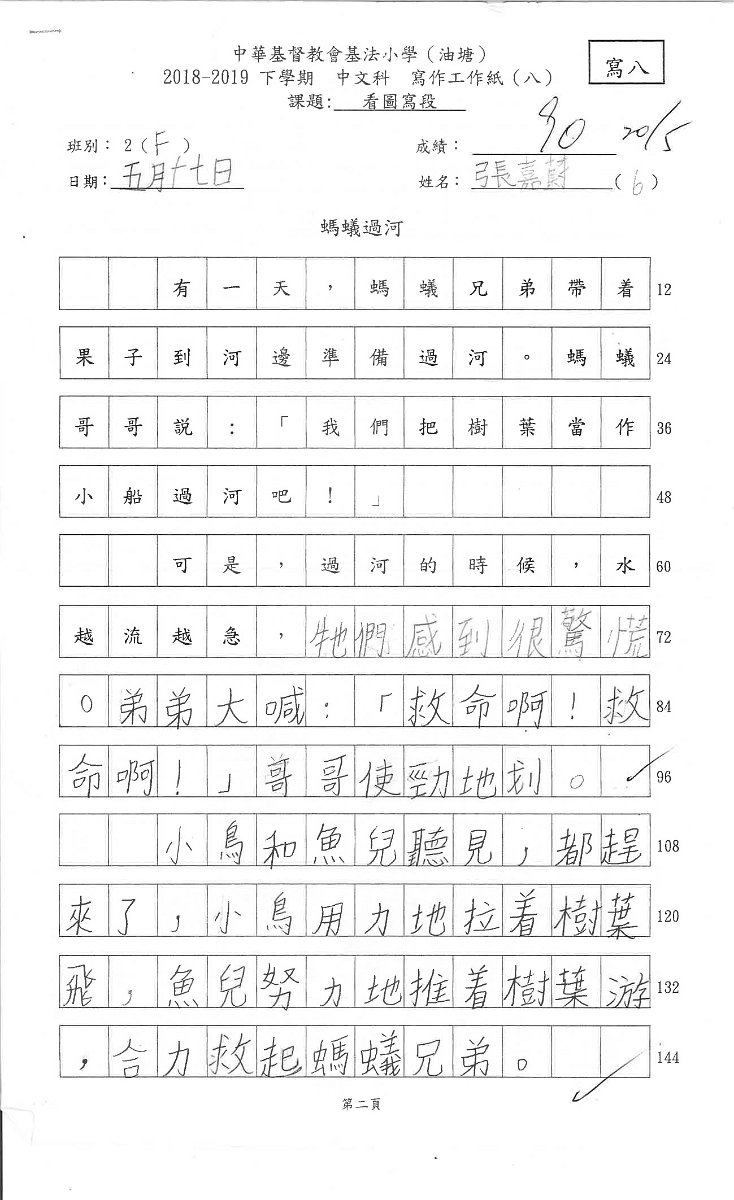 中華基督教會基法小學（油塘）
2018-2019 下學期　中文科　寫作工作紙（八）
寫八
課題：看圖寫段
班別：2（F）
成績：90 20/5
日期：五月十七日
姓名：張嘉蔚（6）
螞蟻過河
有一天，螞蟻兄弟帶着 12
果子到河邊準備過河。螞蟻 24
哥哥說：「我們把樹葉當作 36
小船過河吧！」 48
可是，過河的時候，水 60
越流越急，牠們感到很驚慌 72
。弟弟大喊：「救命啊！救 84
命啊！」哥哥使勁地划。 96
小鳥和魚兒聽見，都趕 108
來了，小鳥用力地拉着樹葉 120
飛，魚兒努力地推着樹葉游 132
，合力救起螞蟻兄弟。 144
第二頁